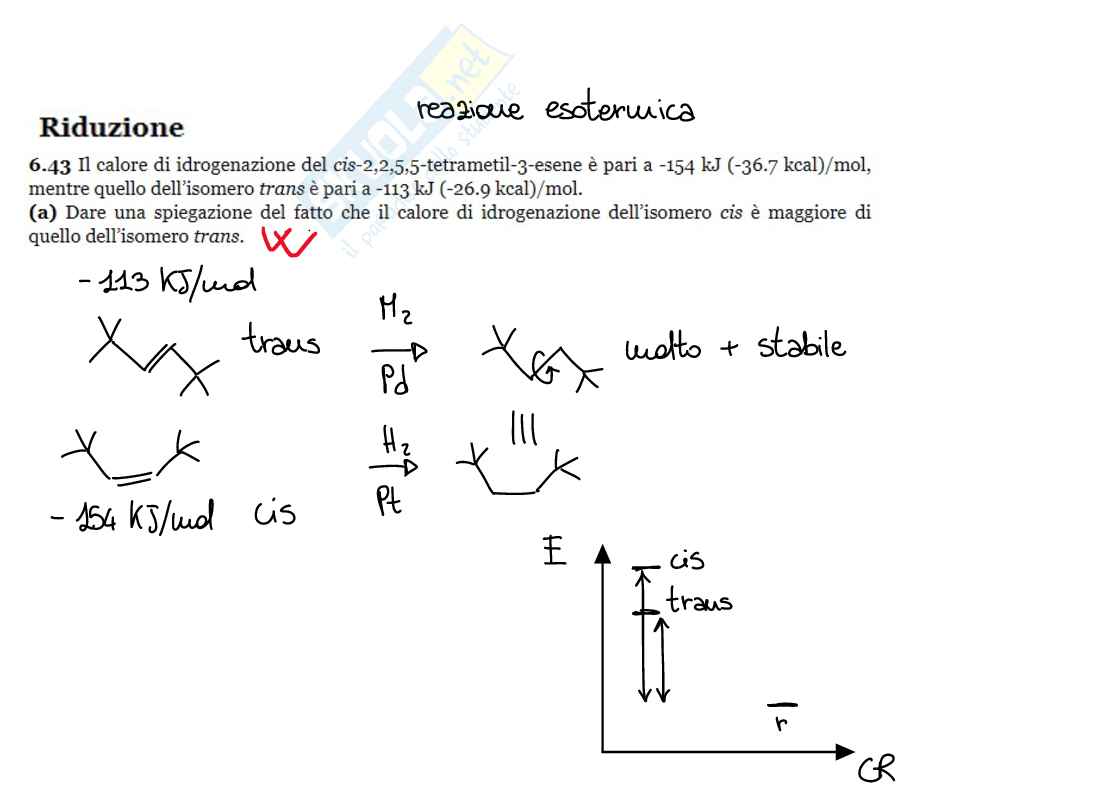 SKUOLA.net
il paradiso dello studente
reazione esotermica
Riduzione
6.43 Il calore di idrogenazione del cis-2,2,5,5-tetrametil-3-esene è pari a -154 kJ (-36.7 kcal)/mol,
mentre quello dell'isomero trans è pari a -113 kJ (-26.9 kcal)/mol.
(a) Dare una spiegazione del fatto che il calore di idrogenazione dell'isomero cis è maggiore di
quello dell'isomero trans.
- 113 KJ/mol
trans
H2
Pd
molto + stabile
H2
Pt
- 154 KJ/mol cis
E
cis
trans
r
CR